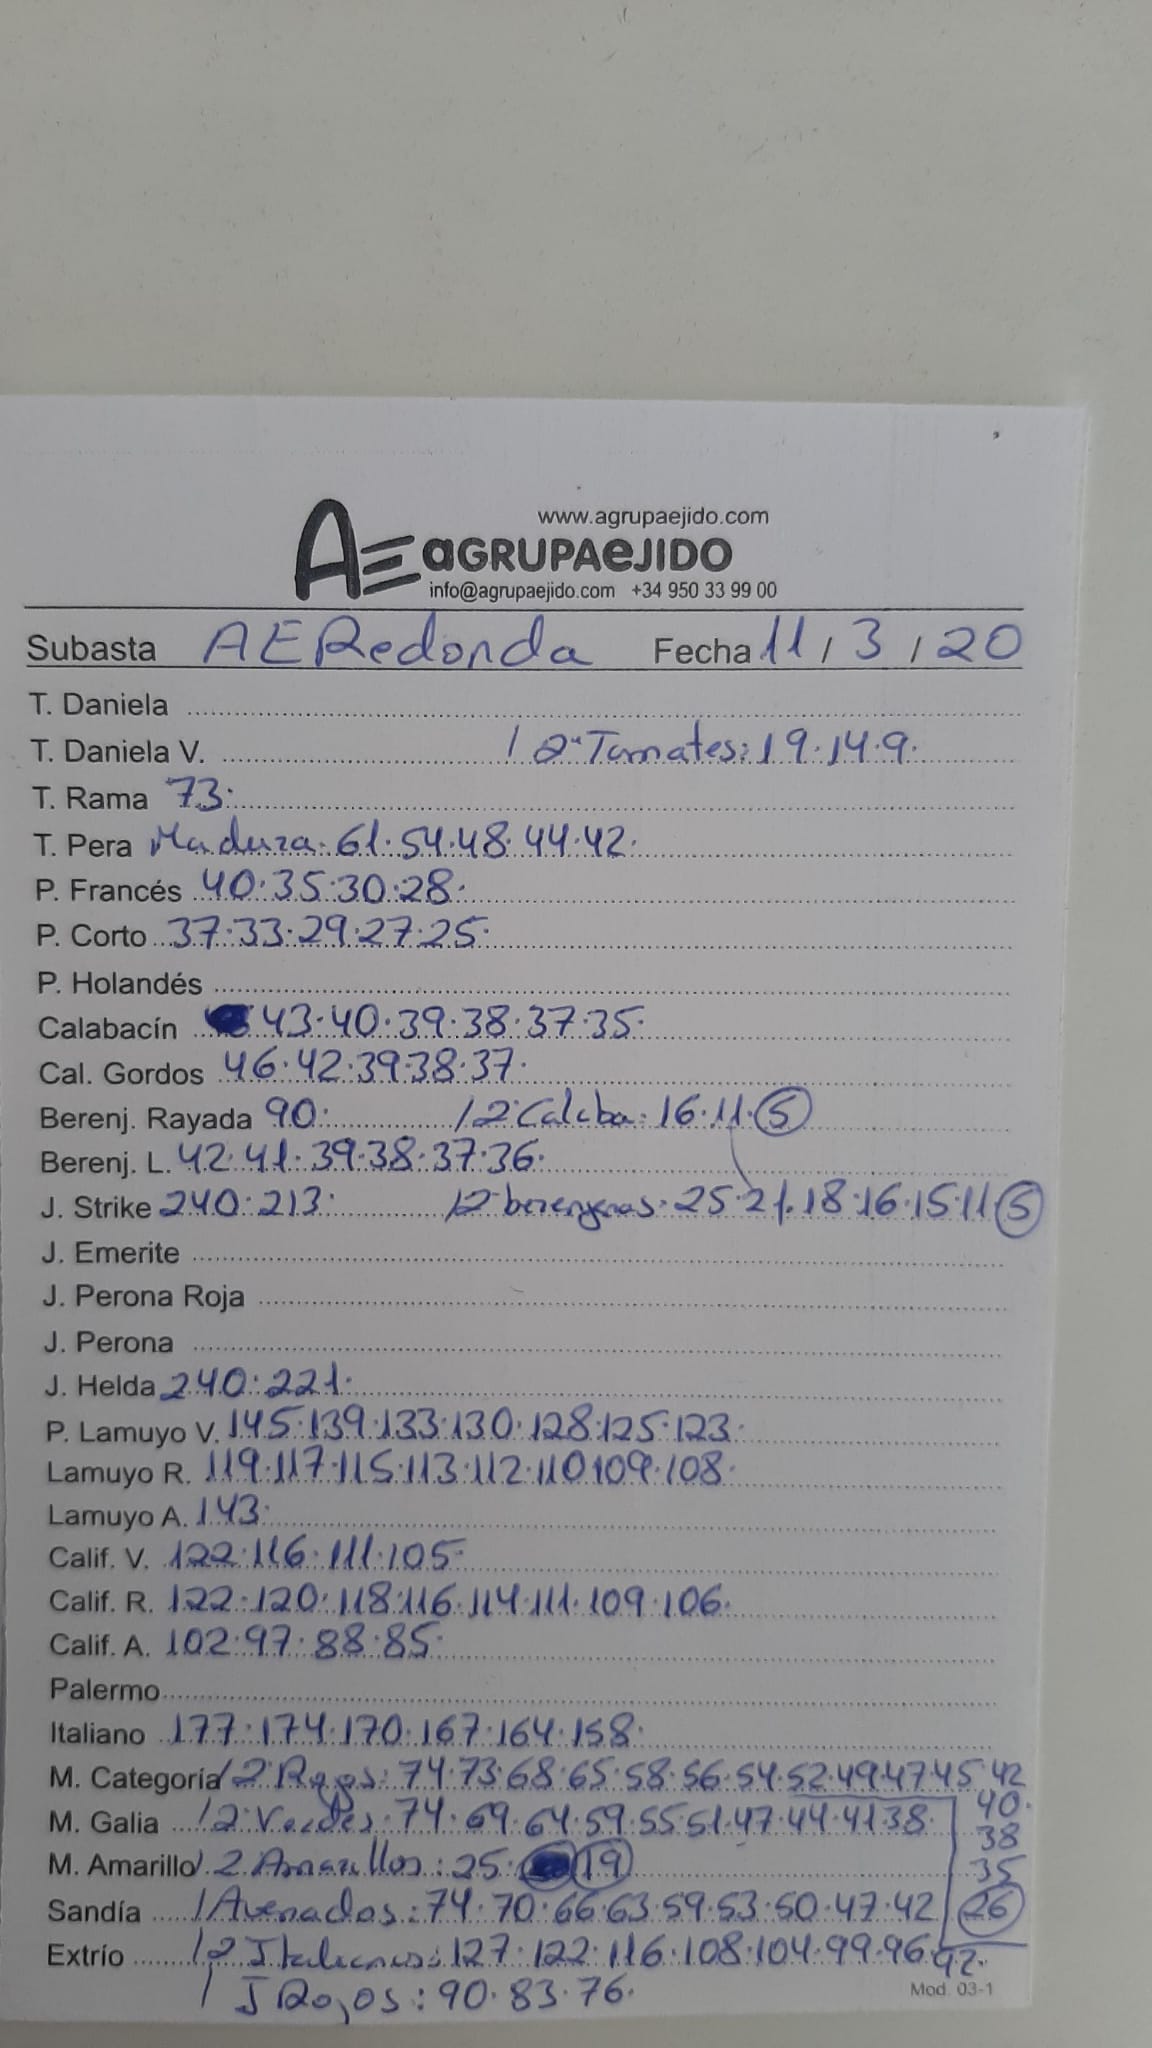 www.agrupaejido.com
AE aGRUPAeJIDO
info@agrupaejido.com +34 950 33 99 00
Subasta AERedonda Fecha 11/3/20
T. Daniela
T. Daniela V. / 2ª Tomates: 19.14.9.
T. Rama 73.
T. Pera Madura. 61.54.48.44.42.
P. Francés 40.35.30.28.
P. Corto 37.33.29.27.25.
P. Holandés
Calabacín 43.40.39.38.37.35.
Cal. Gordos 46.42.39.38.37.
Berenj. Rayada 90. / 2ª Calaba. 16.11.5
Berenj. L. 42.41.39.38.37.36.
J. Strike 240.213. / 2 berenjenas. 25.21.18.16.15.11.5
J. Emerite
J. Perona Roja
J. Perona
J. Helda 240.221.
P. Lamuyo V. 145.139.133.130.128.125.123.
Lamuyo R. 119.117.115.113.112.110.109.108.
Lamuyo A. 143.
Calif. V. 122.116.111.105.
Calif. R. 122.120.118.116.114.111.109.106.
Calif. A. 102.97.88.85.
Palermo
Italiano 177.174.170.167.164.158.
M. Categoría / 2ª Rojos: 74.73.68.65.58.56.54.52.49.47.45.42
40.
M. Galia / 2 Verdes: 74.69.64.59.55.51.47.44.41.38.
38
M. Amarillo / 2 Amarillos: 25. 19
35
Sandía / Avenados: 74.70.66.63.59.53.50.47.42
26
Extrío / 2 Italianos: 127.122.116.108.104.99.96.92.
/ I Rojos: 90.83.76.
Mod. 03-1